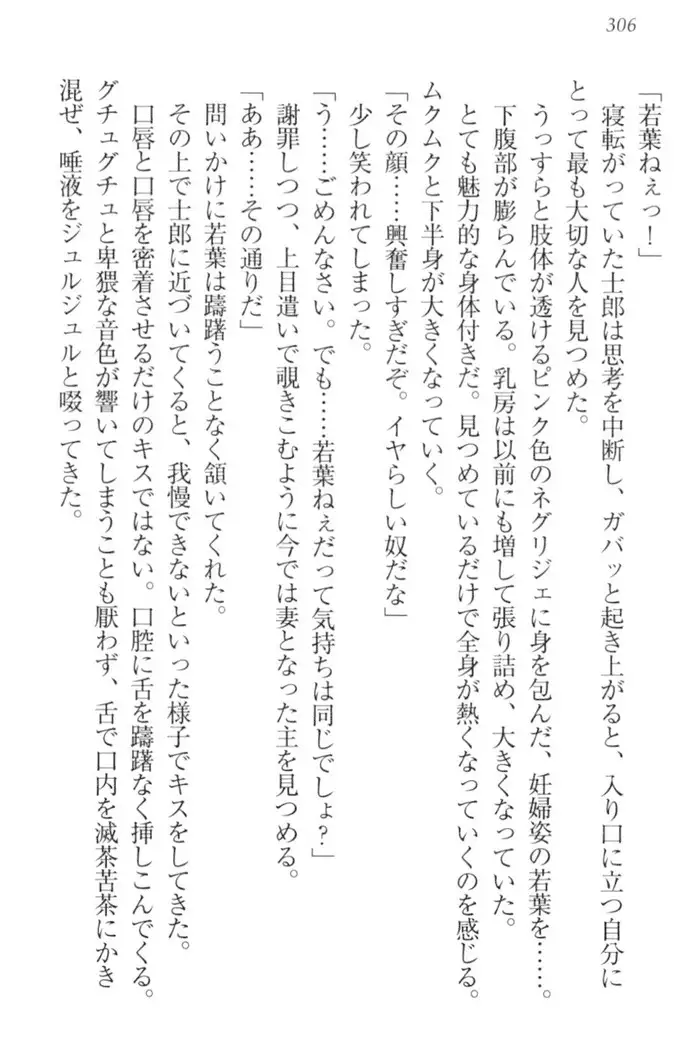 306
「若葉ねぇっ！」
　寝転がっていた士郎は思考を中断し、ガバッと起き上がると、入り口に立つ自分に
とって最も大切な人を見つめた。
　うっすらと肢体が透けるピンク色のネグリジェに身を包んだ、妊婦姿の若葉を……。
下腹部が膨らんでいる。乳房は以前にも増して張り詰め、大きくなっていた。
　とても魅力的な身体付きだ。見つめているだけで全身が熱くなっていくのを感じる。
ムクムクと下半身が大きくなっていく。
「その顔……興奮しすぎだぞ。イヤらしい奴だな」
　少し笑われてしまった。
「う……ごめんなさい。でも……若葉ねぇだって気持ちは同じでしょ？」
　謝罪しつつ、上目遣いで覗きこむように今では妻となった主を見つめる。
「ああ……その通りだ」
問いかけに若葉は躊躇うことなく頷いてくれた。
　その上で士郎に近づいてくると、我慢できないといった様子でキスをしてきた。
　口唇と口唇を密着させるだけのキスではない。口腔に舌を躊躇なく挿しこんでくる。
グチュグチュと卑猥な音色が響いてしまうことも厭わず、舌で口内を滅茶苦茶にかき
混ぜ、唾液をジュルジュルと啜ってきた。